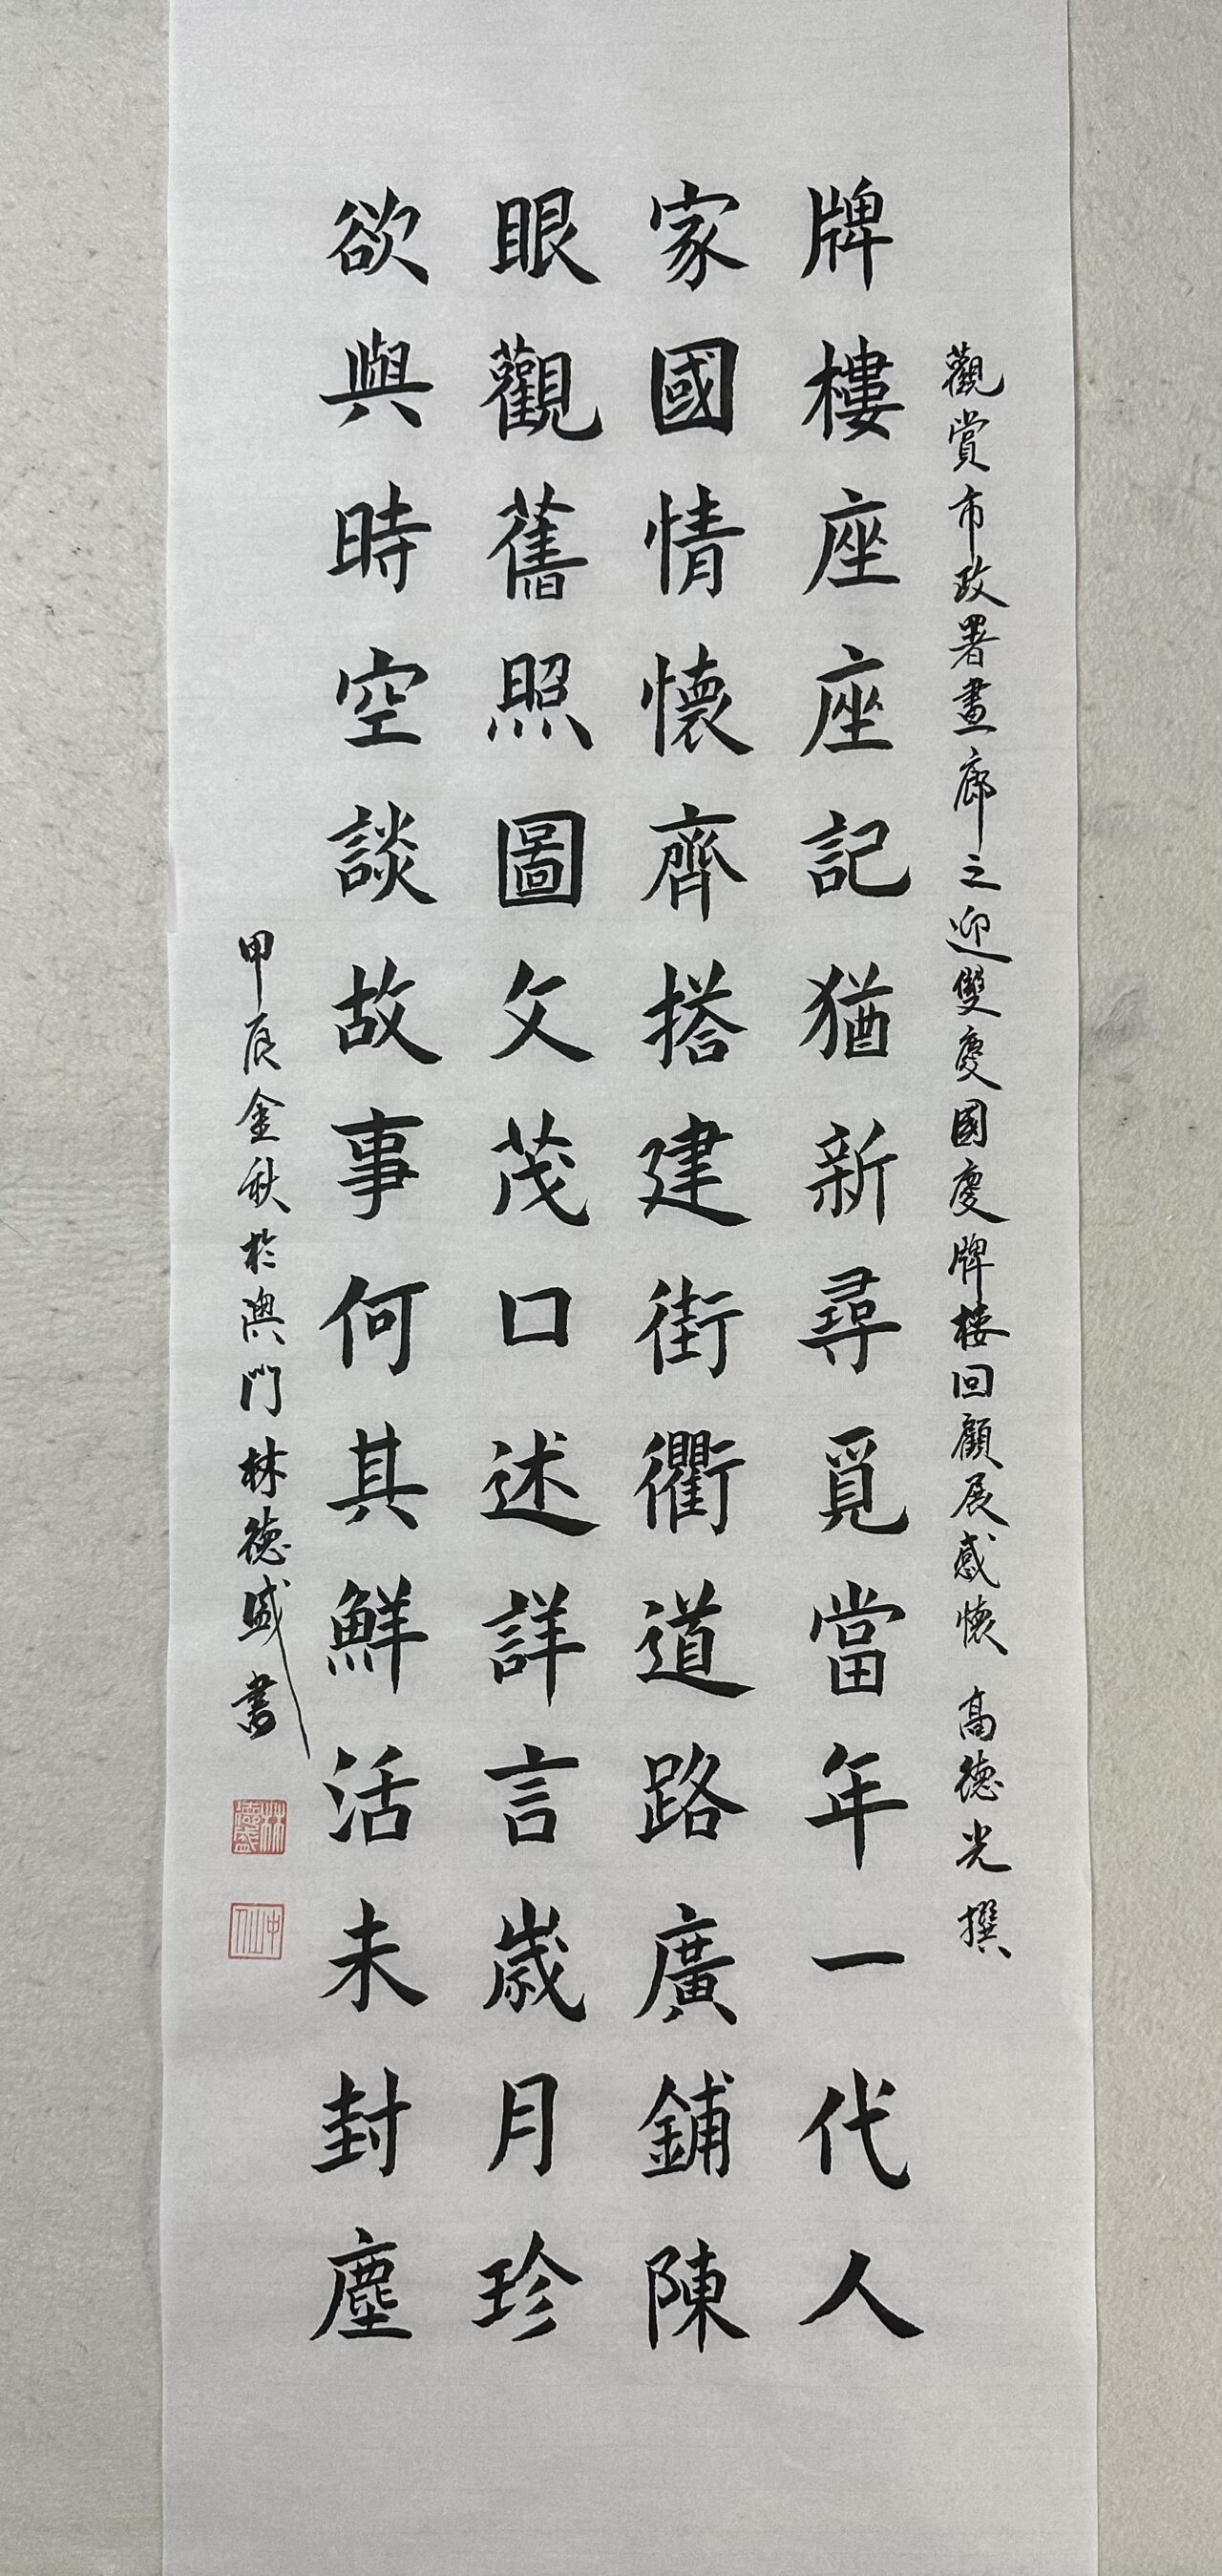 觀賞市政署畫廊之迎雙慶國慶牌樓回顧展感懷 高德光撰
牌樓座座記猶新尋覓當年一代人
家國情懷齊搭建街衢道路廣鋪陳
眼觀舊照圖文茂口述詳言歲月珍
欲與時空談故事何其鮮活未封塵
甲辰金秋於澳門林德盛書
林德盛